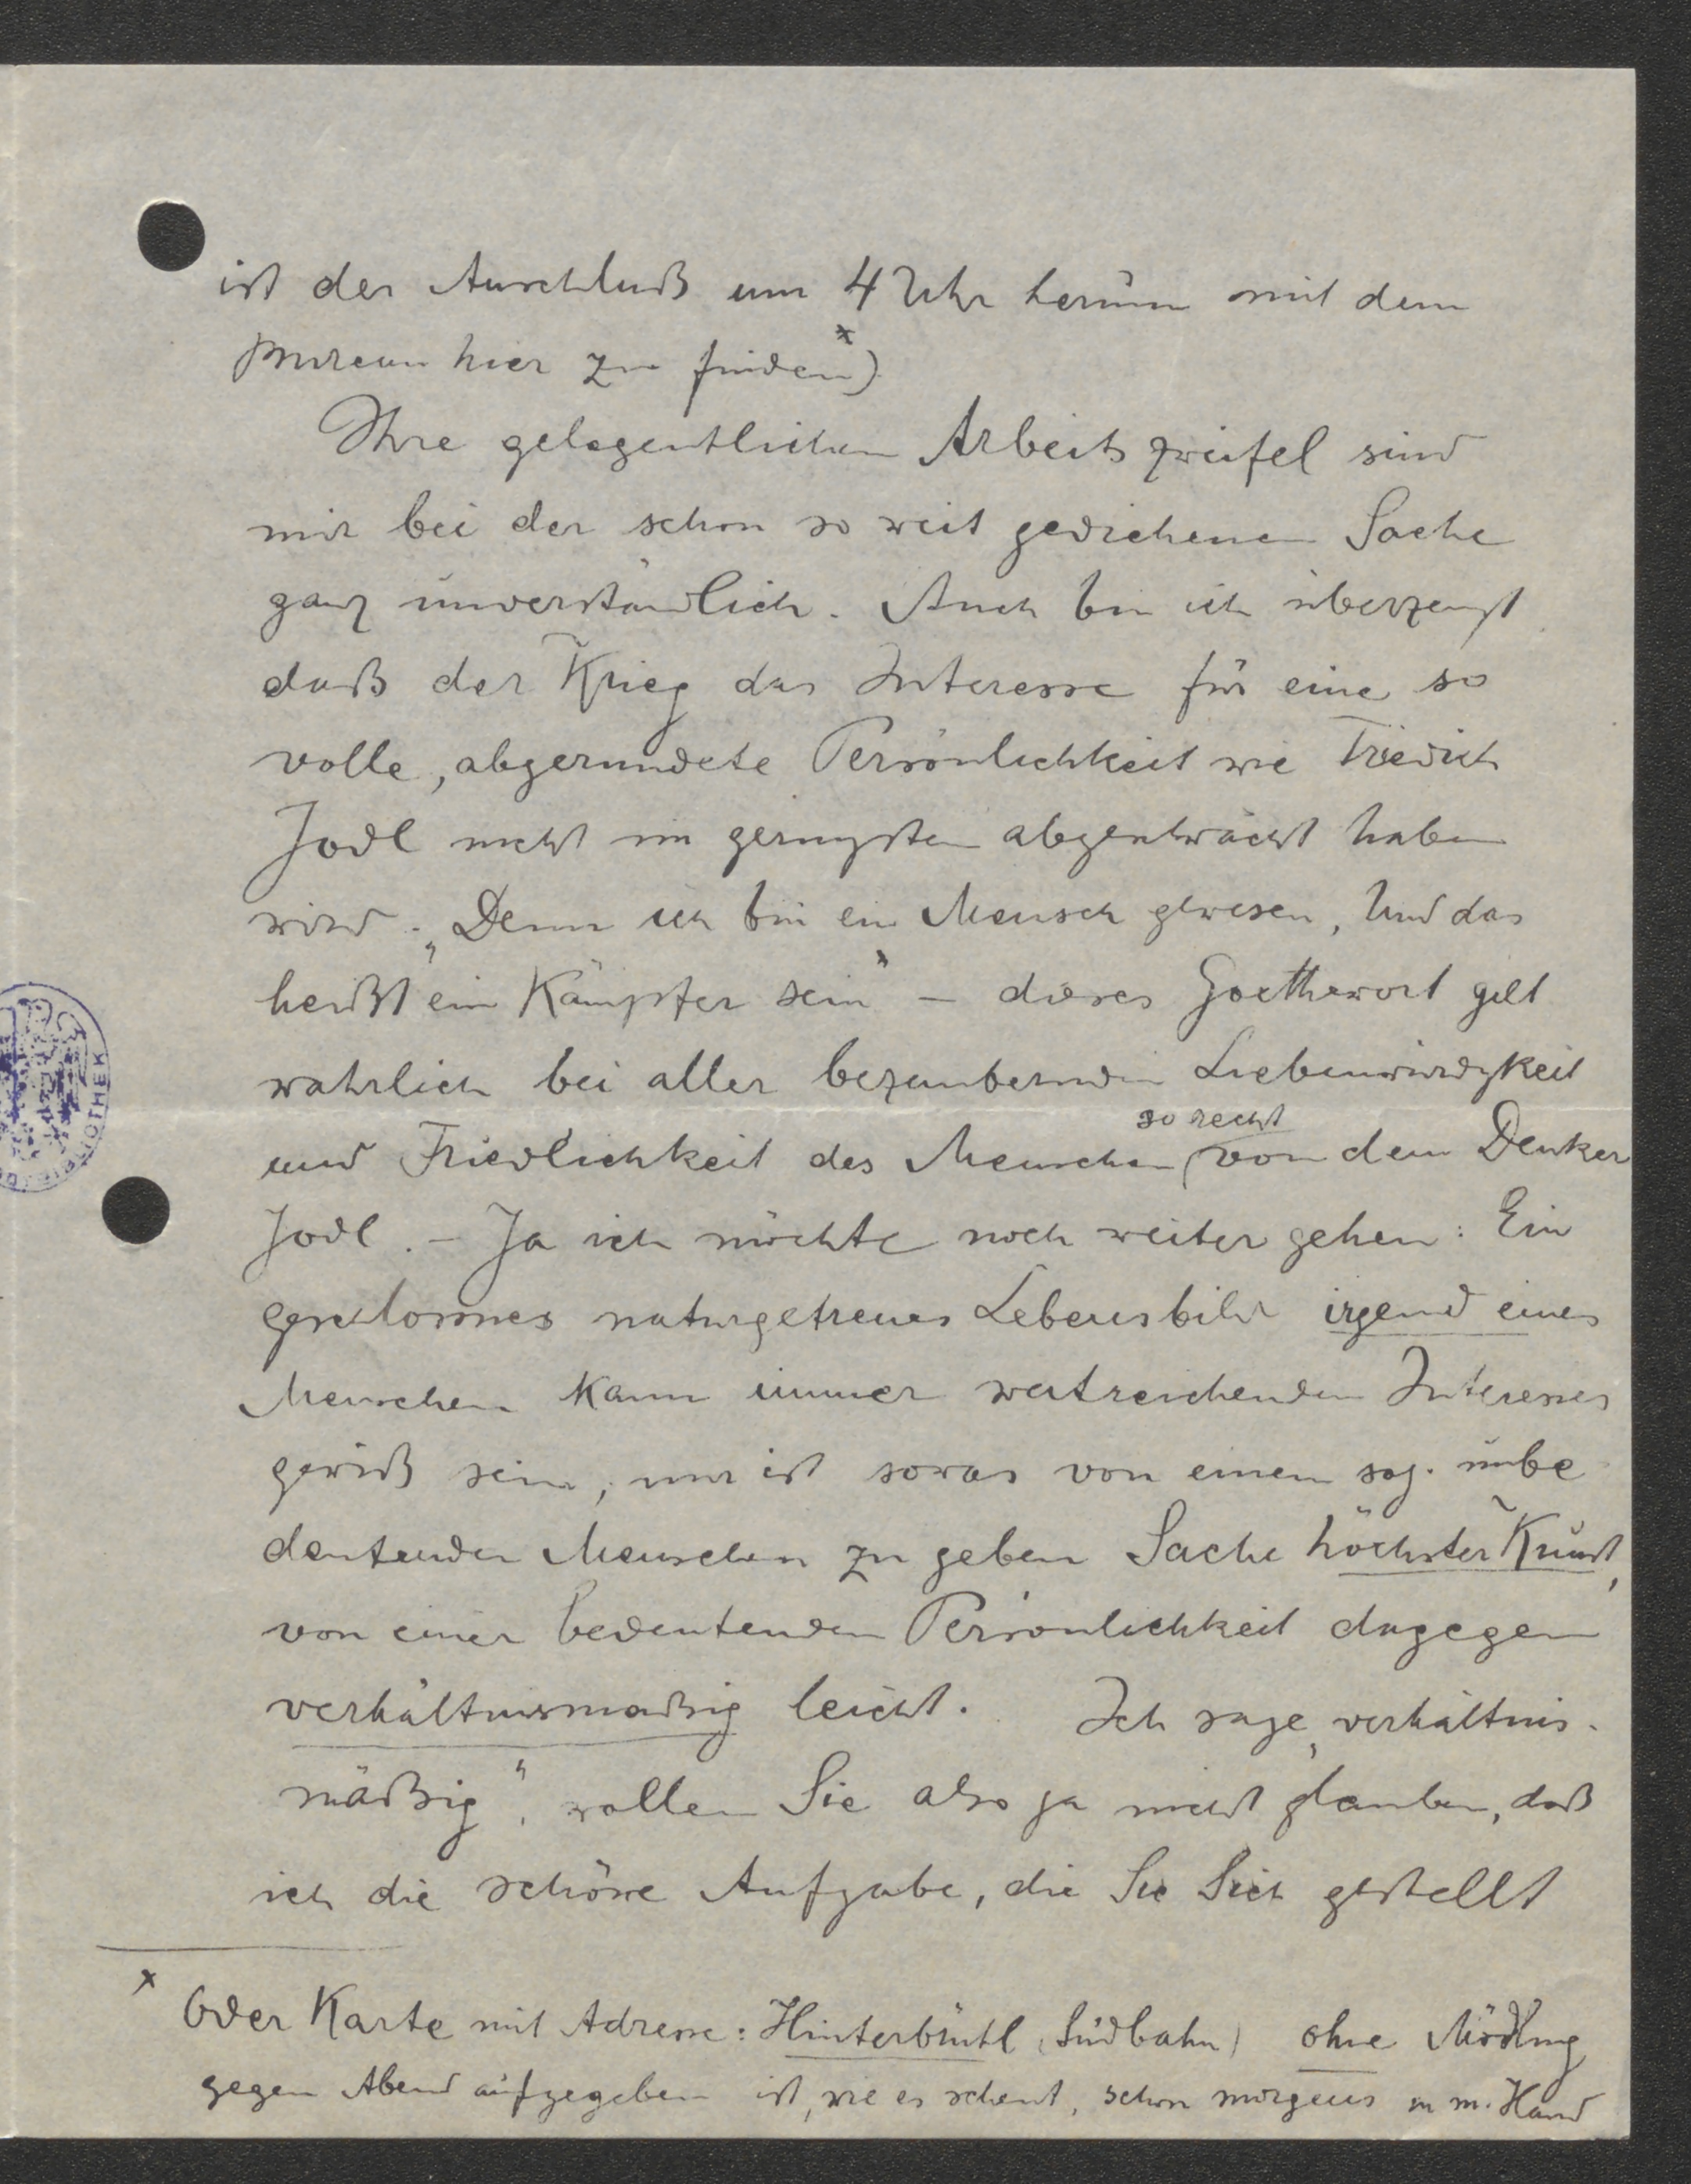 ist der Anschluß um 4 Uhr herum mit dem
hier zu finden*)
Ihre gelegentlichen Arbeitszweifel sind
mir bei der schon so weit gediehenen Sache
ganz unverständlich. Auch bin ich überzeugt
daß der Krieg das Interesse für eine so
volle, abgerundete Persönlichkeit wie Friedrich
Jodl nicht im geringsten abgeschwächt haben
wird. „Denn ich bin ein Mensch gewesen, Und das
heißt ein Kämpfer sein" – dieses Goethewort gilt
wahrlich bei aller bezaubernden Liebenswürdigkeit
so recht
und Friedlichkeit des Menschen von dem Denker
Jodl. – Ja ich möchte noch weiter gehen: Ein
geschlossnes naturgetreues Lebensbild irgend eines
Menschen kann immer weitreichenden Interesses
gewiß sein, nur ist sowas von einem sog. unbe
deutenden Menschen zu geben Sache höchster Kunst,
von einer bedeutenden Persönlichkeit dagegen
verhältnismäßig leicht. Ich sage „verhältnis-
mäßig", wollen Sie also ja nicht glauben, daß
ich die schöne Aufgabe, die Sie Sich gestellt
x Oder Karte mit Adresse: Hinterbrühl (Südbahn) ohne Mödling
gegen Abend aufgegeben ist, wie es scheint, schon morgens in m. Hand